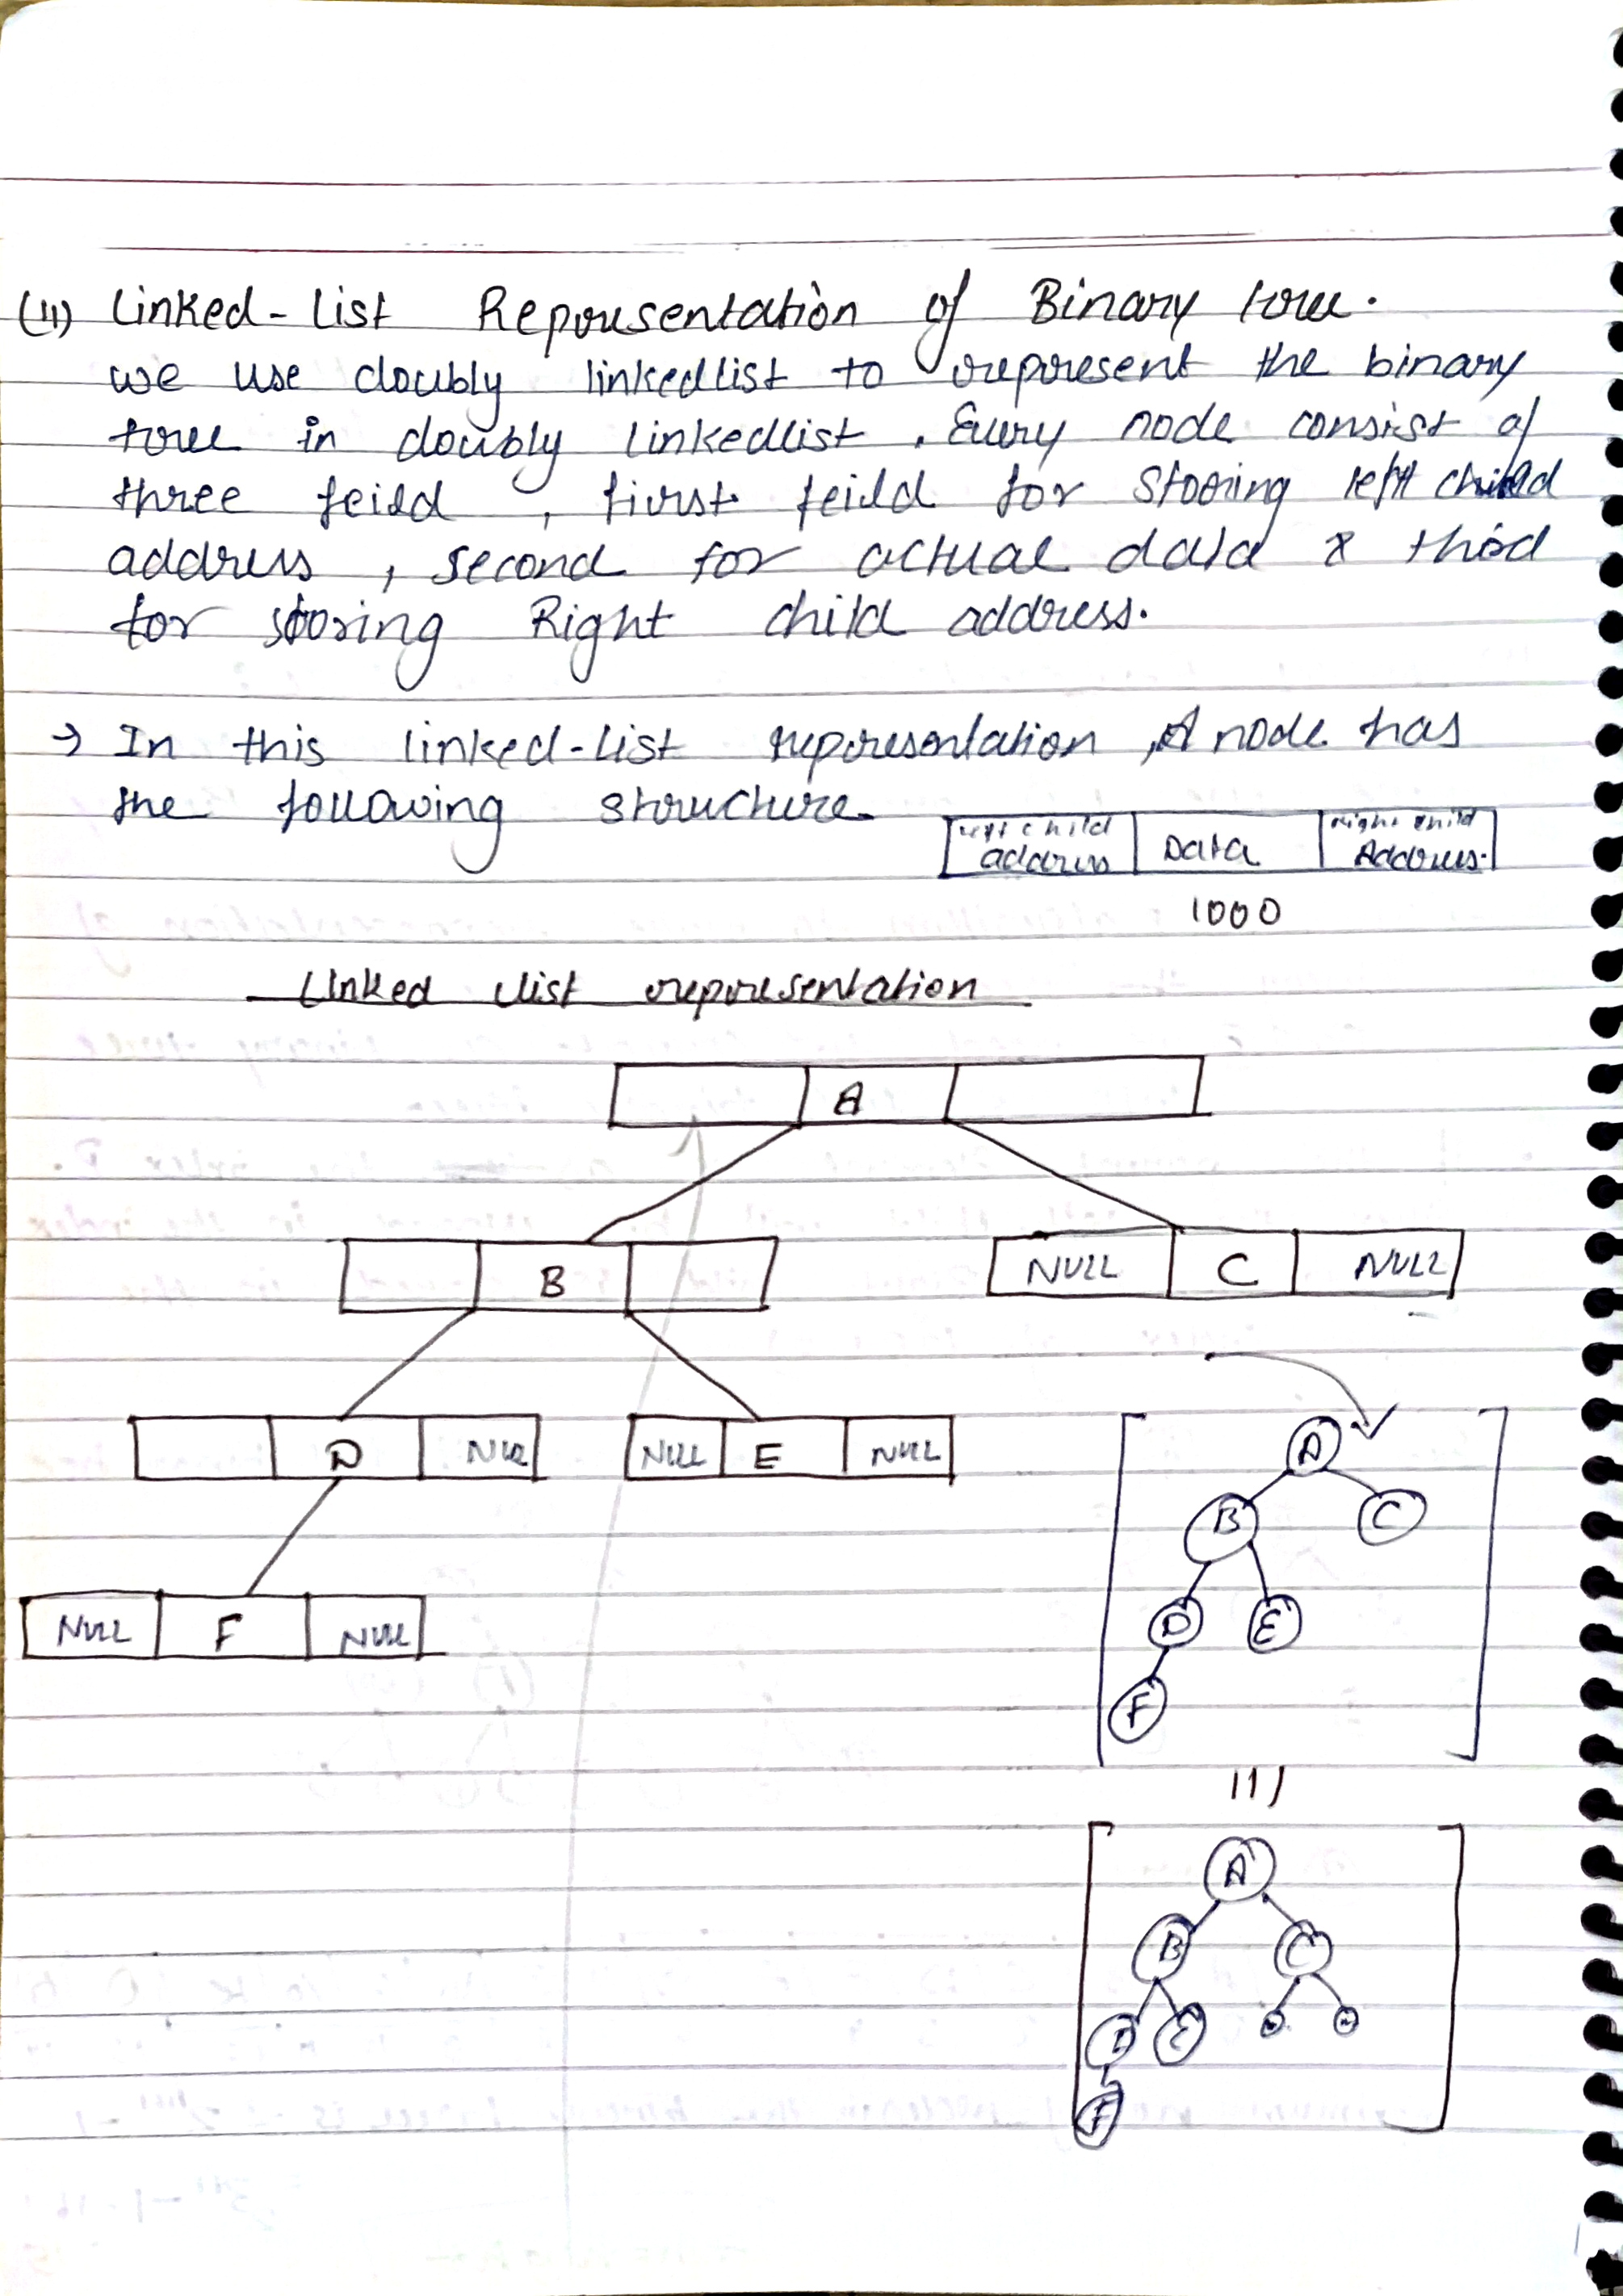 (11) Linked-List Representation of Binary tree.
we use doubly linkedlist to represent the binary
tree in doubly linkedlist. Every node consist of
three feild, first feild for storing left child
address, second for actual data & third
for storing Right child address.
→ In this linked-list representation, A node has
the following structure.
left child address Data right child Address.
1000
Linked list representation
A
B NULL C NULL
D NULL NULL E NULL
NULL F NULL
A
B C
D E
F
11)
A
B C
D E
F